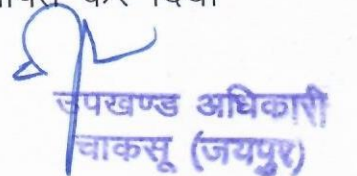 कर दिया
उपखण्ड अधिकारी
चाकसू (जयपुर)